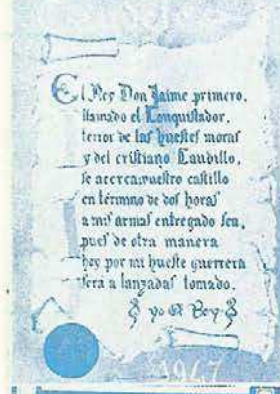 El Rey Don Jaime primero,
llamado el Conquistador,
terror de las huestes moras
y del cristiano Caudillo,
se acerca vuestro castillo
en término de dos horas
a mis armas entregado sea,
pues de otra manera
hoy por mi hueste guerrera
será a lanzadas tomado.
yo El Rey
1947